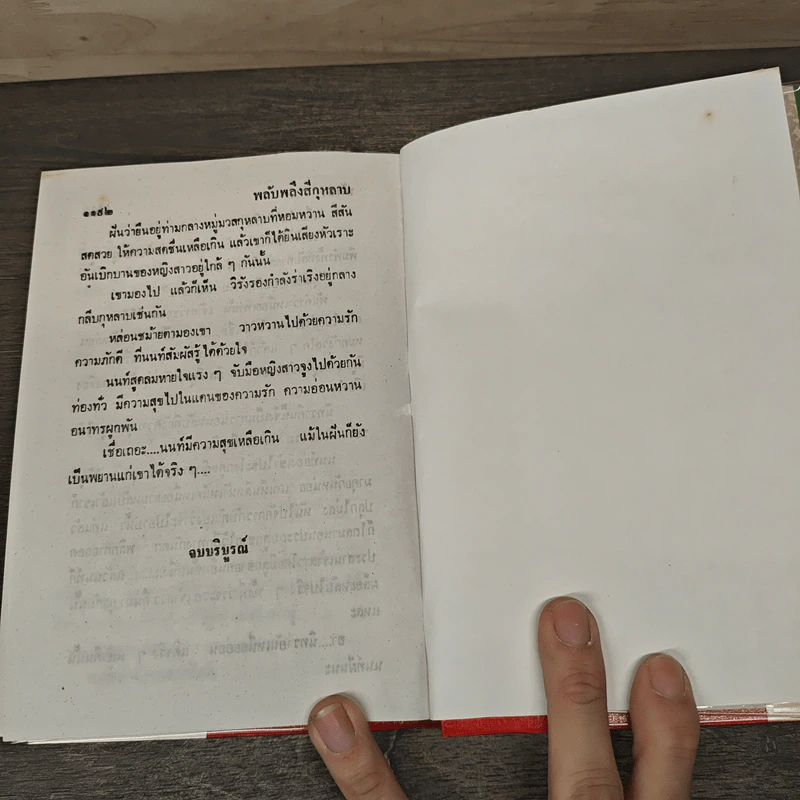 ๑๑๕๒
พลับพลึงสีกุหลาบ
ฝันว่ายืนอยู่ท่ามกลางหมู่มวลกุหลาบที่หอมหวาน สีสัน
สดสวย ให้ความสดชื่นเหลือเกิน แล้วเขาก็ได้ยินเสียงหัวเราะ
อันเบิกบานของหญิงสาวอยู่ใกล้ ๆ กันนั้น
เขามองไป แล้วก็เห็น วิรังรองกำลังร่าเริงอยู่กลาง
กลีบกุหลาบเช่นกัน
หล่อนชม้ายตามองเขา วาวหวานไปด้วยความรัก
ความภักดี ที่นนท์สัมผัสรู้ได้ด้วยใจ
นนท์สูดลมหายใจแรง ๆ จับมือหญิงสาวจูงไปด้วยกัน
ท่องทั่ว มีความสุขไปในแดนของความรัก ความอ่อนหวาน
อนาทรผูกพัน
เชื่อเถอะ....นนท์มีความสุขเหลือเกิน แม้ในฝันก็ยัง
เป็นพยานแก่เขาได้จริง ๆ....
จบบริบูรณ์